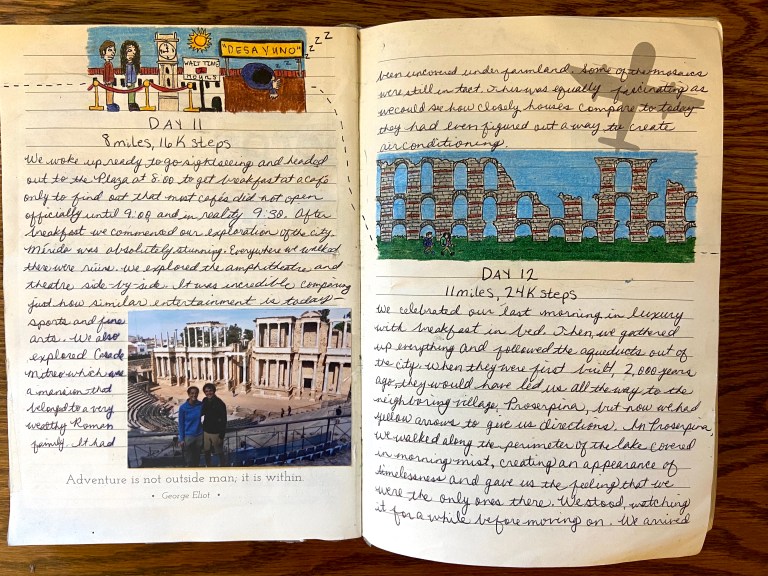 "DESAYUNO"
Z Z Z Z
WAIT TIME
HOURS
DAY 11
8 miles, 16K steps
We woke up ready to go sightseeing and headed
out to the Plaza at 8:00 to get breakfast at a café
only to find out that most cafés did not open
officially until 9:00 and in reality 9:30. After
breakfast we commenced our exploration of the city.
Mérida was absolutely stunning. Everywhere we walked,
there were ruins. We explored the amphitheatre and
theatre side-by-side. It was incredible comparing
just how similar entertainment is today -
sports and fine
arts. We also
explored Casa de
Mitreo which was
a mansion that
belonged to a very
wealthy Roman
family. It had
Adventure is not outside man; it is within.
• George Eliot •
been uncovered under farmland. Some of the mosaics
were still in tact. This was equally fascinating as
we could see how closely houses compare to today
they had even figured out a way to create
air conditioning.
DAY 12
11 miles, 24K steps
We celebrated our last morning in luxury
with breakfast in bed. Then, we gathered
up everything and followed the aqueducts out of
the city. When they were first built, 2,000 years
ago, they would have led us all the way to the
neighboring village, Proserpina, but now we had
yellow arrows to give us directions. In Proserpina,
we walked along the perimeter of the lake covered
in morning mist, creating an appearance of
timelessness and gave us the feeling that we
were the only ones there. We stood, watching
it for a while before moving on. We arrived